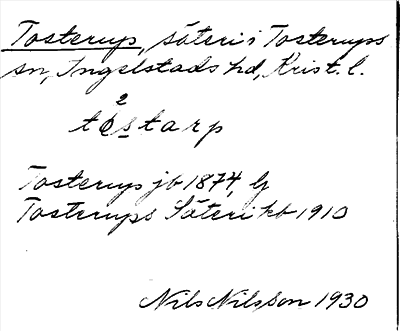 Tosterup, säteri i Tosterups
sn, Ingelstads hd, Krist. l.
2
tøstarp
Tosterup jb 1874, lj
Tosterups Säteri kb 1910
Nils Nilsson 1930